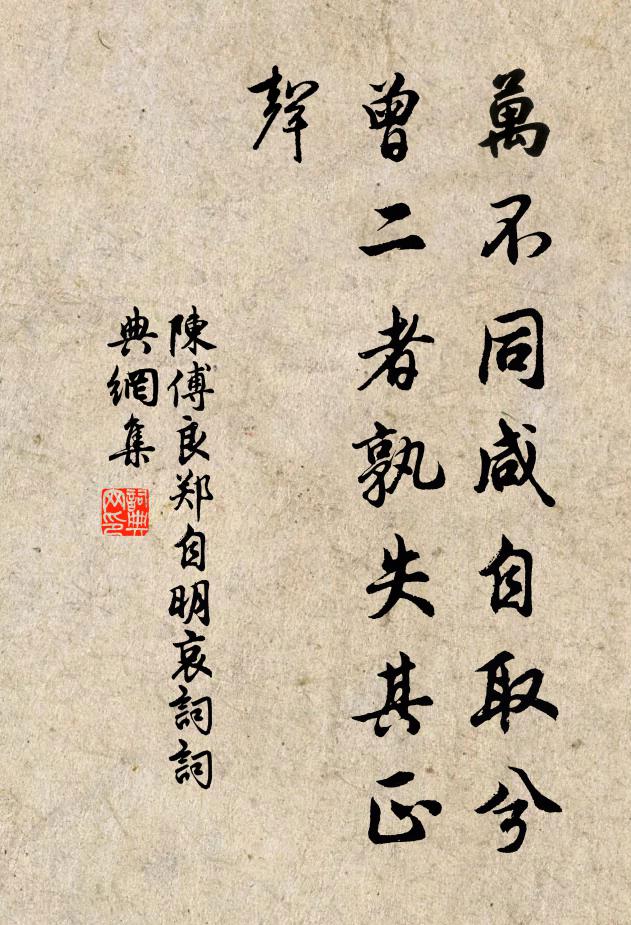 萬不同咸自取兮
曾二者孰失其正
聲
陳傅良郑自明哀詞詞
典網集
詞典
网印